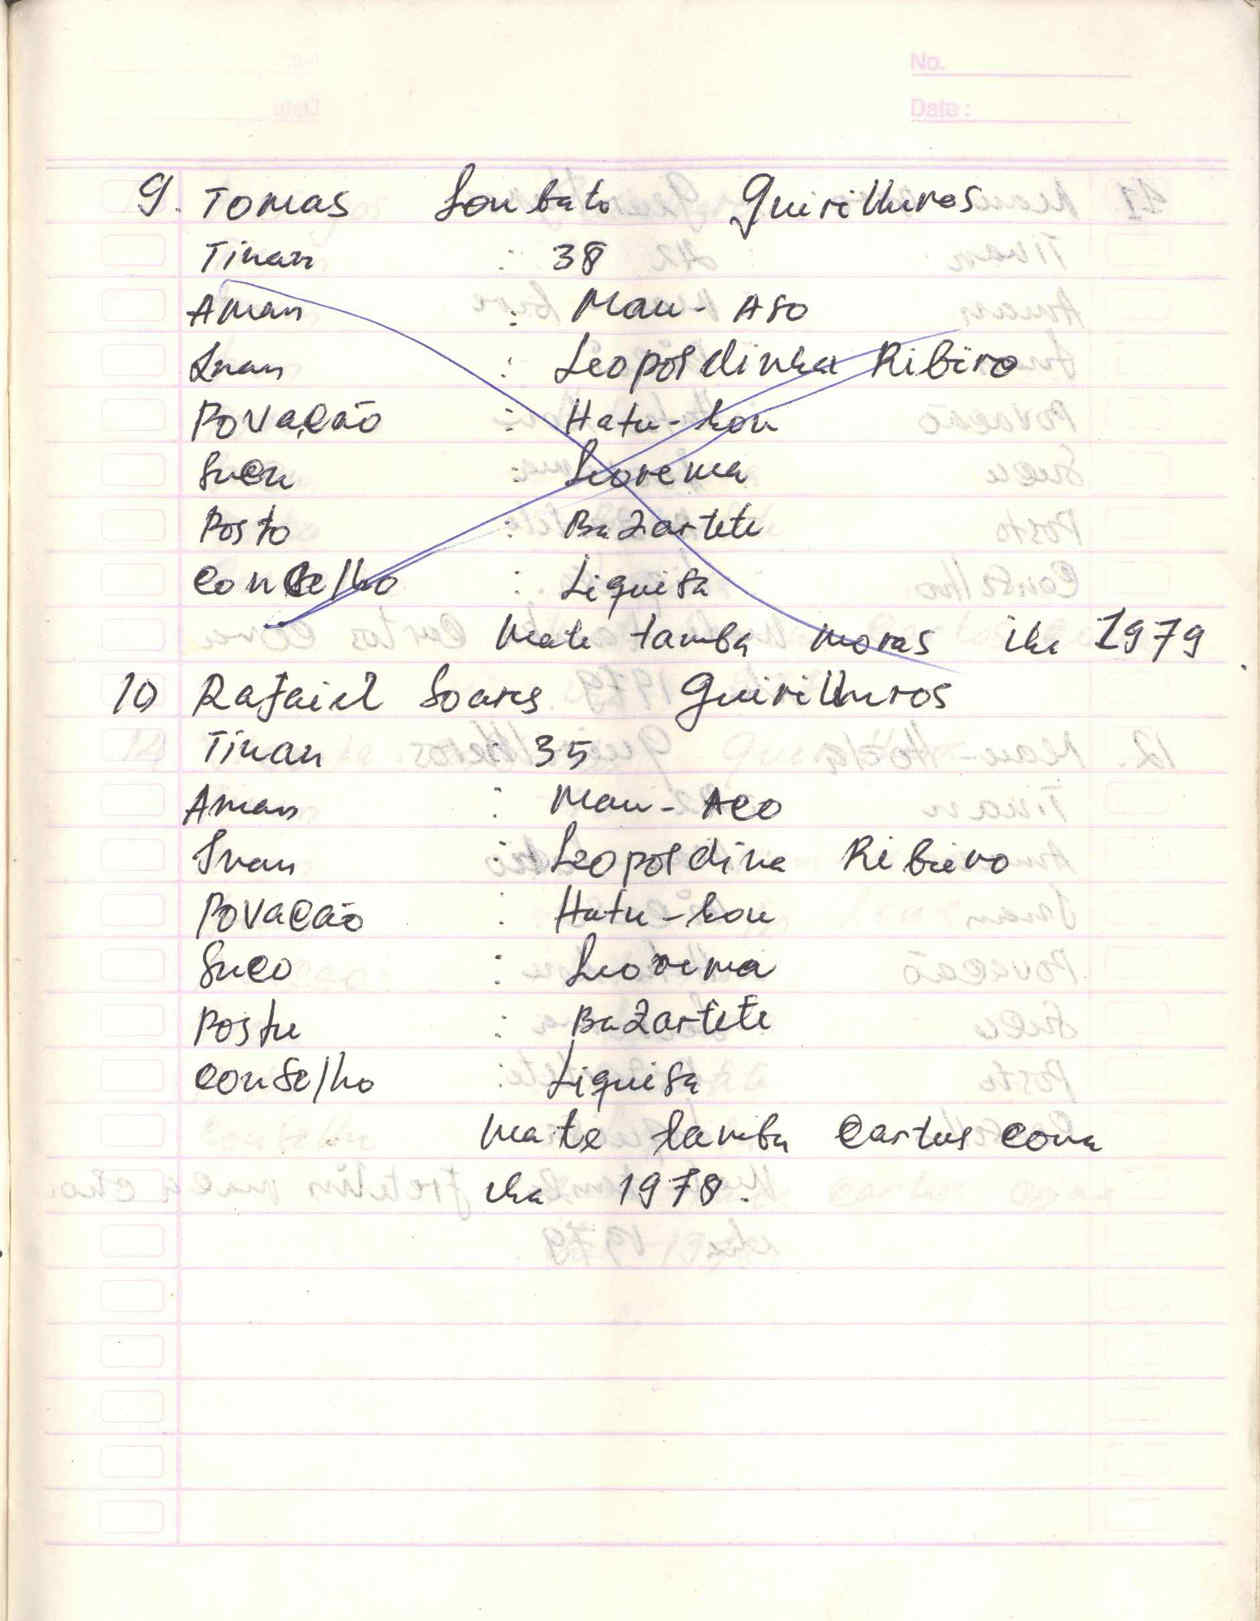 No.
Date :
9. Tomas Loubato Guirilluros
Tinan : 38
Aman : Mau - Aso
Inan : Leopoldinha Ribiro
Povação : Hatu-kou
Sucu : Leorema
Posto : Bazartete
Conselho : Liquisa
Mate tamba moras iha 1979
10) Rafaiel Soares Guirilluros
Tinan : 35
Aman : Mau - Aco
Inan : Leopoldina Ribiero
Povacão : Hatu-kou
Suco : Leorema
Postu : Bazartete
Conselho : Liquisa
Mate tamba Cartus Cona
iha 1978.